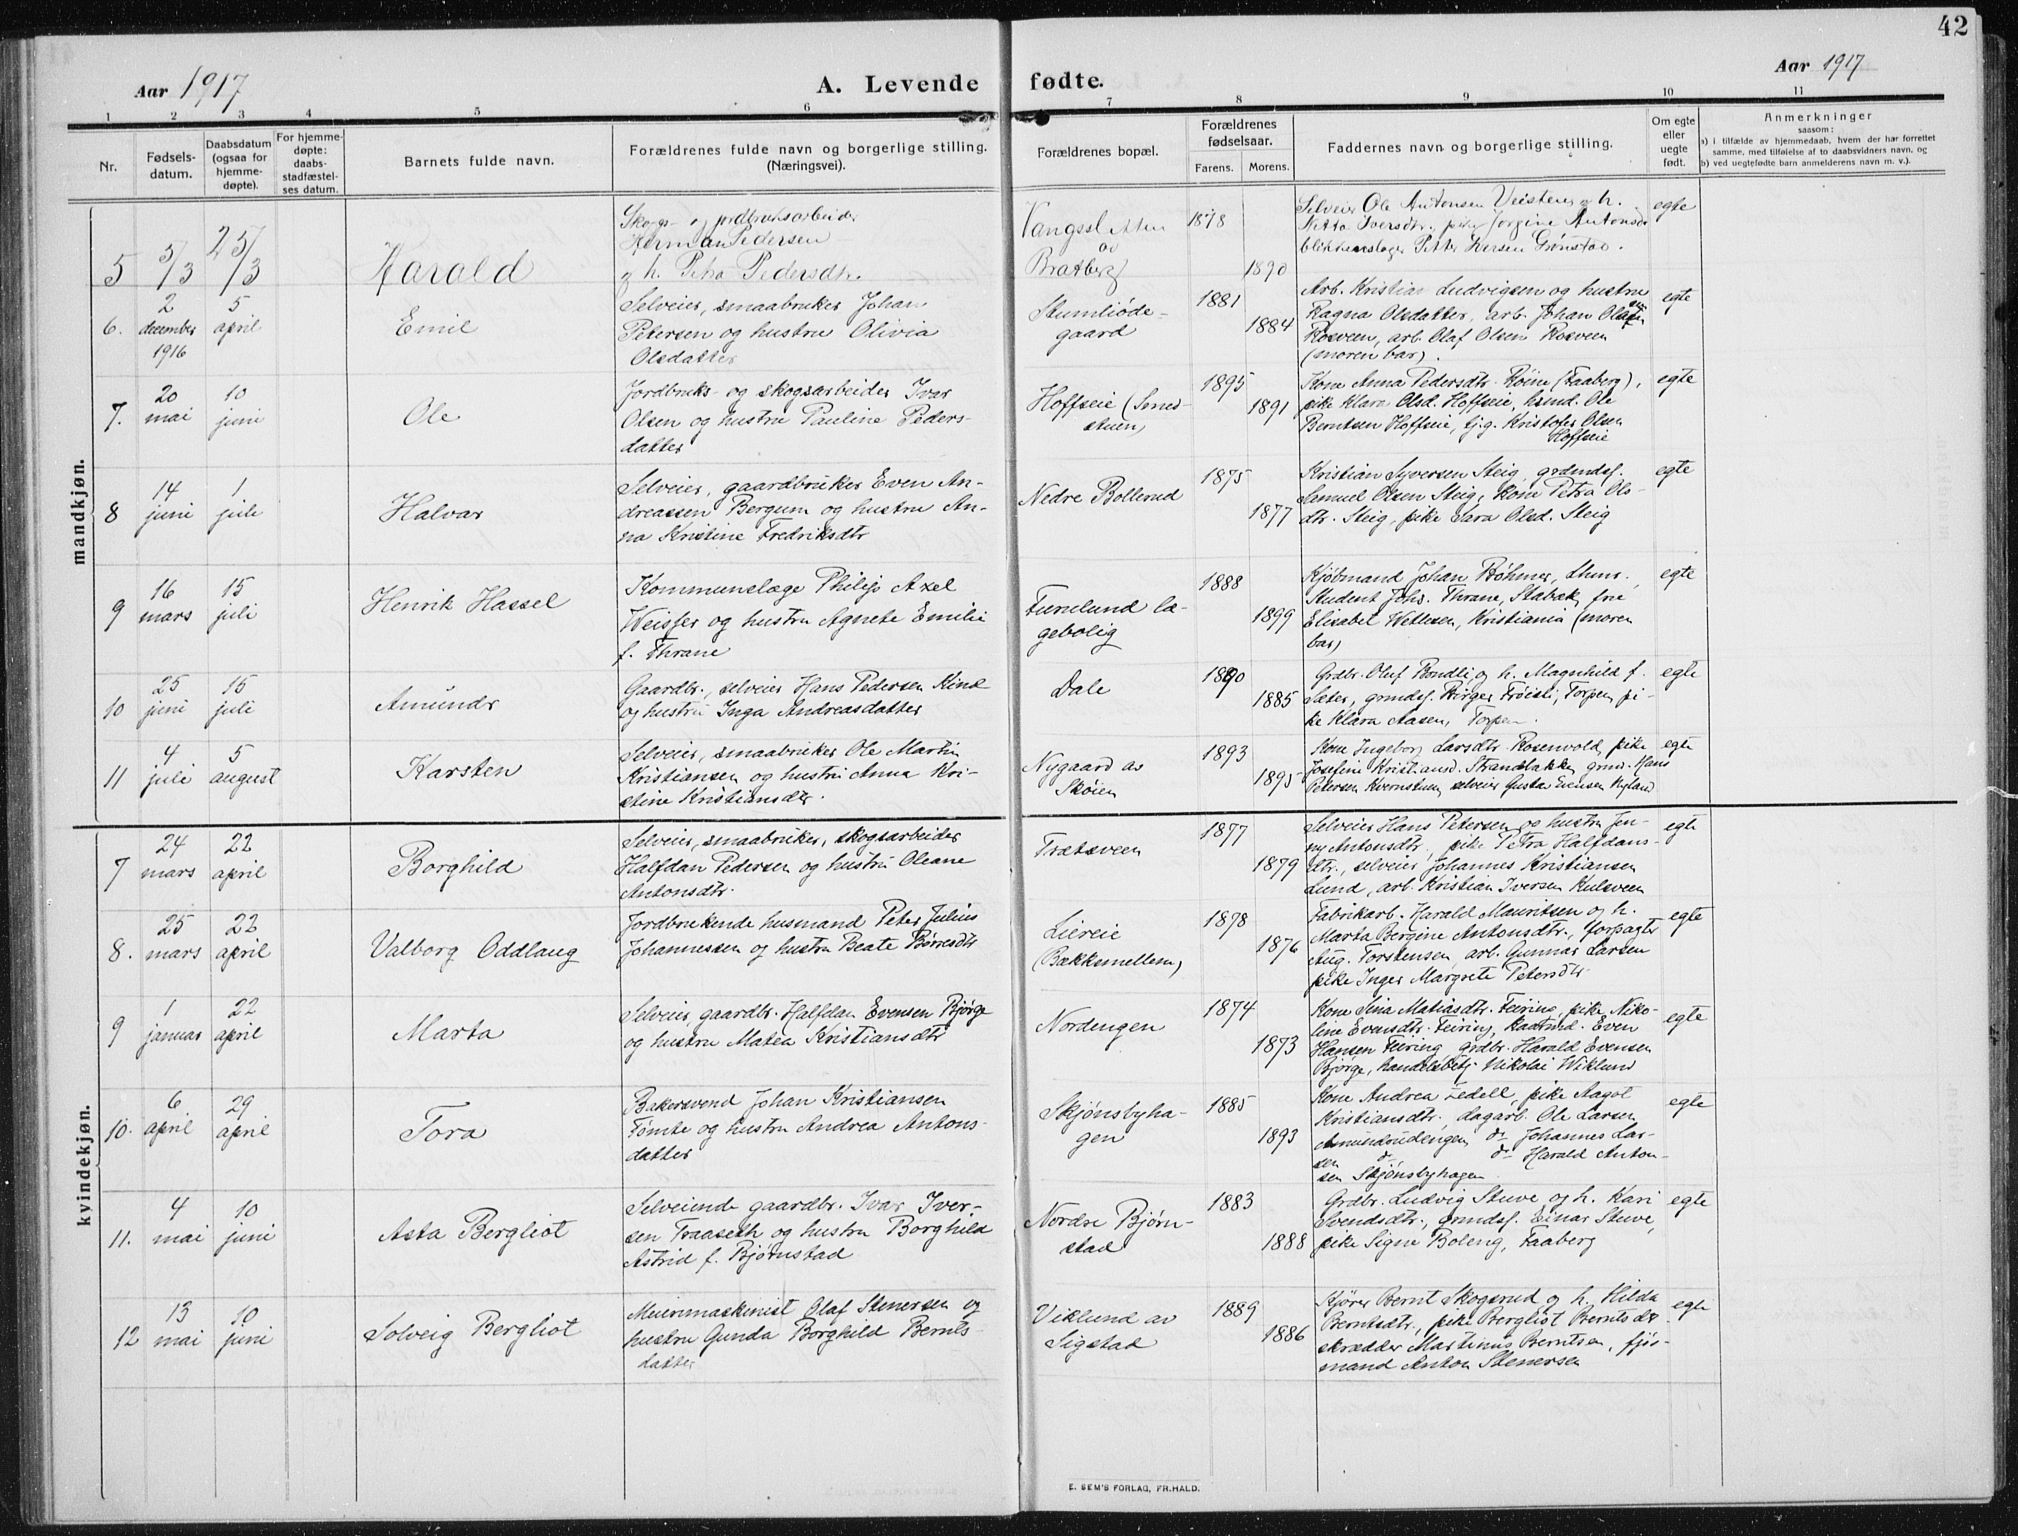 42
Aar 1917
A. Levende fødte.
Aar 1917
1 2 3 4 5 6 7 8 9 10 11
Nr.
Fødsels-
datum.
Daabsdatum
(ogsaa for
hjemme-
døpte).
For hjemme-
døpte:
daabs-
stadfæstel-
ses datum.
Barnets fulde navn.
Forældrenes fulde navn og borgerlige stilling.
(Næringsvei).
Forældrenes bopæl.
Forældrenes
fødselsaar.
Farens. Morens.
Faddernes navn og borgerlige stilling.
Om egte
eller
uegte
født.
Anmerkninger
saasom:
a) i tilfælde av hjemmedaab, hvem der har forrettet
samme, med tilføielse af to daabsvidners navn, og
b) ved uegtefødte barn anmelderens navn m. v.).
mandkjøn.
5 5/3 25/3 Harald
Skogs- og jordbruksarbeider
Herman Pedersen
og h. Petra Pedersdtr.
Vangssletten
av
Bratberg
1878
1890
Selveier Ole Antonsen Veisten og h.
Iversdtr. pike Jorgine Antonsdr
blikkenslager Petter Iversen Grønstad.
egte
6. 2
december
1916
5
april
Emil
Selveier, smaabruker Johan
Petersen og hustru Olivia
Olsdatter
Stumliøde-
gaard
1881
1884
Arb. Kristian Ludvigsen og hustru
Ragna Olsdatter, arb. Johan Olsen
Rosveen, arb. Olaf Olsen Rosveen
(moren bar).
egte
7. 20
mai
10
juni
Ole
Jordbruks- og skogsarbeider Ivar
Olsen og hustru Pauline Peders-
datter
Hoffseie (Smed-
stuen)
1895
1891
Kone Anna Pedersdtr. Roine (Faaberg),
pike Klara Olsd. Hoffseie, husmd. Ole
Berntsen Hoffseie, tj.g. Kristofer Olsen
Hoffseie
egte
8 14
juni
1
juli
Halvar
Selveier, gaardbruker Even An-
dreassen Bergum og hustru An-
na Kristine Fredriksdtr
Nedre Bollerud
1875
1877
Kristian Syversen Steig, grdmdsf.
Samuel Olsen Steig, kone Petra Ols-
dtr. Steig, pike Sara Olsd. Steig
egte
9 16
mars
15
juli
Henrik Hassel
Kommunelæge Philip Axel
Weisser og hustru Agnete Emilie
f. Thrane
Furulund læ-
gebolig
1888
1899
Kjøbmand Johan Bøhmer, Thune.
Student Johs. Thrane, Stabæk, frue
Elisabet Wetlesen, Kristiania (moren
bar)
egte
10 25
juni
15
juli
Amund
Gaardbr., selveier Hans Pedersen Kind
og hustru Inga Andreasdatter
Dale
1880
1885
Grdbr. Oluf Rondli og h. Magnhild f.
Sæter, grmdsf. Birger Frøisli, Torpen, pi-
ke Klara Aasen, Torpen.
egte
11 4
juli
5
august
Karsten
Selveier, smaabruker Ole Martin
Kristiansen og hustru Anna Kri-
stine Kristiansdtr.
Nygaard av
Skøien
1893
1895
Kone Ingeborg Larsdtr. Rosenvold, pike
Josefine Kristiansd. Strandbakken, grmd. Hans
Petersen Kvernstuen, selveier Gustav Evensen Nyland
egte
kvindekjøn.
7 24
mars
22
april
Borghild
Selveier, smaabruker, skogsarbeider
Halfdan Pedersen og hustru Oleane
Antonsdtr.
Trætsveen
1877
1879
Selveier Hans Petersen og hustru Jen-
ny Antonsdtr, pike Petra Halfdans-
dtr., selveier Johannes Kristiansen
Lund, arb. Kristian Iversen Kulsveen
egte
8. 25
mars
22
april
Valborg Oddlaug
Jordbrukende husmand Peter Julius
Johannessen og hustru Beate Børresdtr
Liereie
(Bækkemellem)
1878
1876
Fabrikarb. Harald Mauritsen og h.
Marta Bergine Antonsdtr., forpagter
Aug. Torstensen, arb. Gunnar Larsen
pike Inger Margrete Petersdtr
egte
9 1
januar
22
april
Marta
Selveier, gaardbr. Halfdan Evensen Bjørge
og hustru Matea Kristiansdtr
Nordengen
1874
1873
Kone Sina Matiasdtr. Feiring, pike Niko-
line Evensdtr. Feiring, kaarmd. Even
Hansen Feiring, grdbr. Harald Evensen
Bjørge, handelsbetj. Nikolai Wiklund
egte
10. 6
april
29
april
Tora
Bakersvend Johan Kristiansen
Tømte og hustru Andrea Antons-
datter
Skjønsbyha-
gen
1885
1893
Kone Andrea Zedell, pike Aagot
Kristiansdtr., dagarb. Ole Larsen
Amundsrudengen, do Johannes Lar-
sen do do Harald Anton-
sen Skjønsbyhagen
egte
11. 4
mai
10
juni
Asta Bergliot
Selveiende gaardbr. Ivar Iver-
sen Traaseth og hustru Borghild
Astrid f. Bjørnstad
Nordre Bjørn-
stad
1883
1888
Grdbr. Ludvig Stuve og h. Kari
Svendsdtr., grmdsf. Einar Stuve,
pike Signe Boleng, Faaberg
egte
12 13
mai
10
juni
Solveig Bergliot
Meierimaskinist Olaf Stenersen og
hustru Gunda Borghild Bernts-
datter
Viklund av
Sigstad
1889
1886
Kjører Bernt Skogsrud og h. Hilda
Berntsdtr., pike Bergliot Berntsdtr
skrædder Martinus Berntsen, fjøs-
mand Anton Stenersen
egte
E. SEM'S FORLAG, FR.HALD.